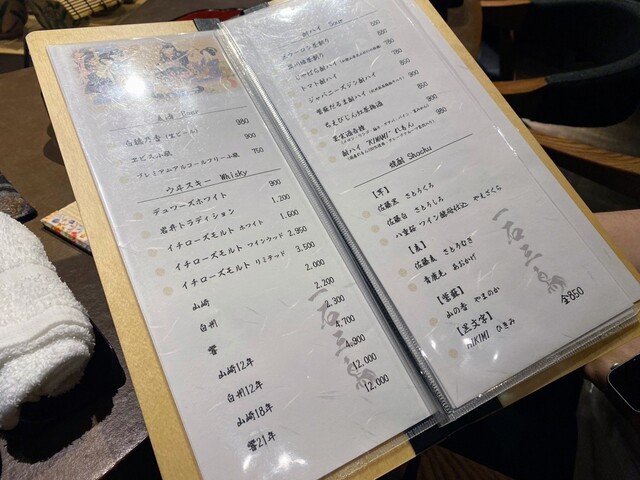 麦酒 Beer
白穂乃香(生ビール) 980
ヱビス小瓶 900
プレミアムアルコールフリー小瓶 750
ウヰスキー Whisky
デュワーズホワイト 900
岩井トラディション 1.200
イチローズモルト ホワイト 1.600
イチローズモルト ワインウッド 2.950
イチローズモルト リミテッド 3.500
山崎 2.000
白州 2.200
響 2.300
山崎12年 4.700
白州12年 4.900
山崎18年 12.000
響21年 12.000
一石三鳥
酎ハイ Sour
トマト酎ハイ
ジャパニーズジン酎ハイ
紫蘇だるま酎ハイ
ちえびじん紅茶梅酒
酎ハイ "KIKIMI" (くろもじ) 950
焼酎 Shochu
【芋】
佐藤黒 さとうくろ
佐藤白 さとうしろ
八重桜 ワイン酵母仕込 やえざくら
【麦】
佐藤麦 さとうむぎ
青鹿毛 あおかげ
【紫蘇】
山の香 やまのか
【黒文字】
KIKIMI ききみ
全850
一石三鳥